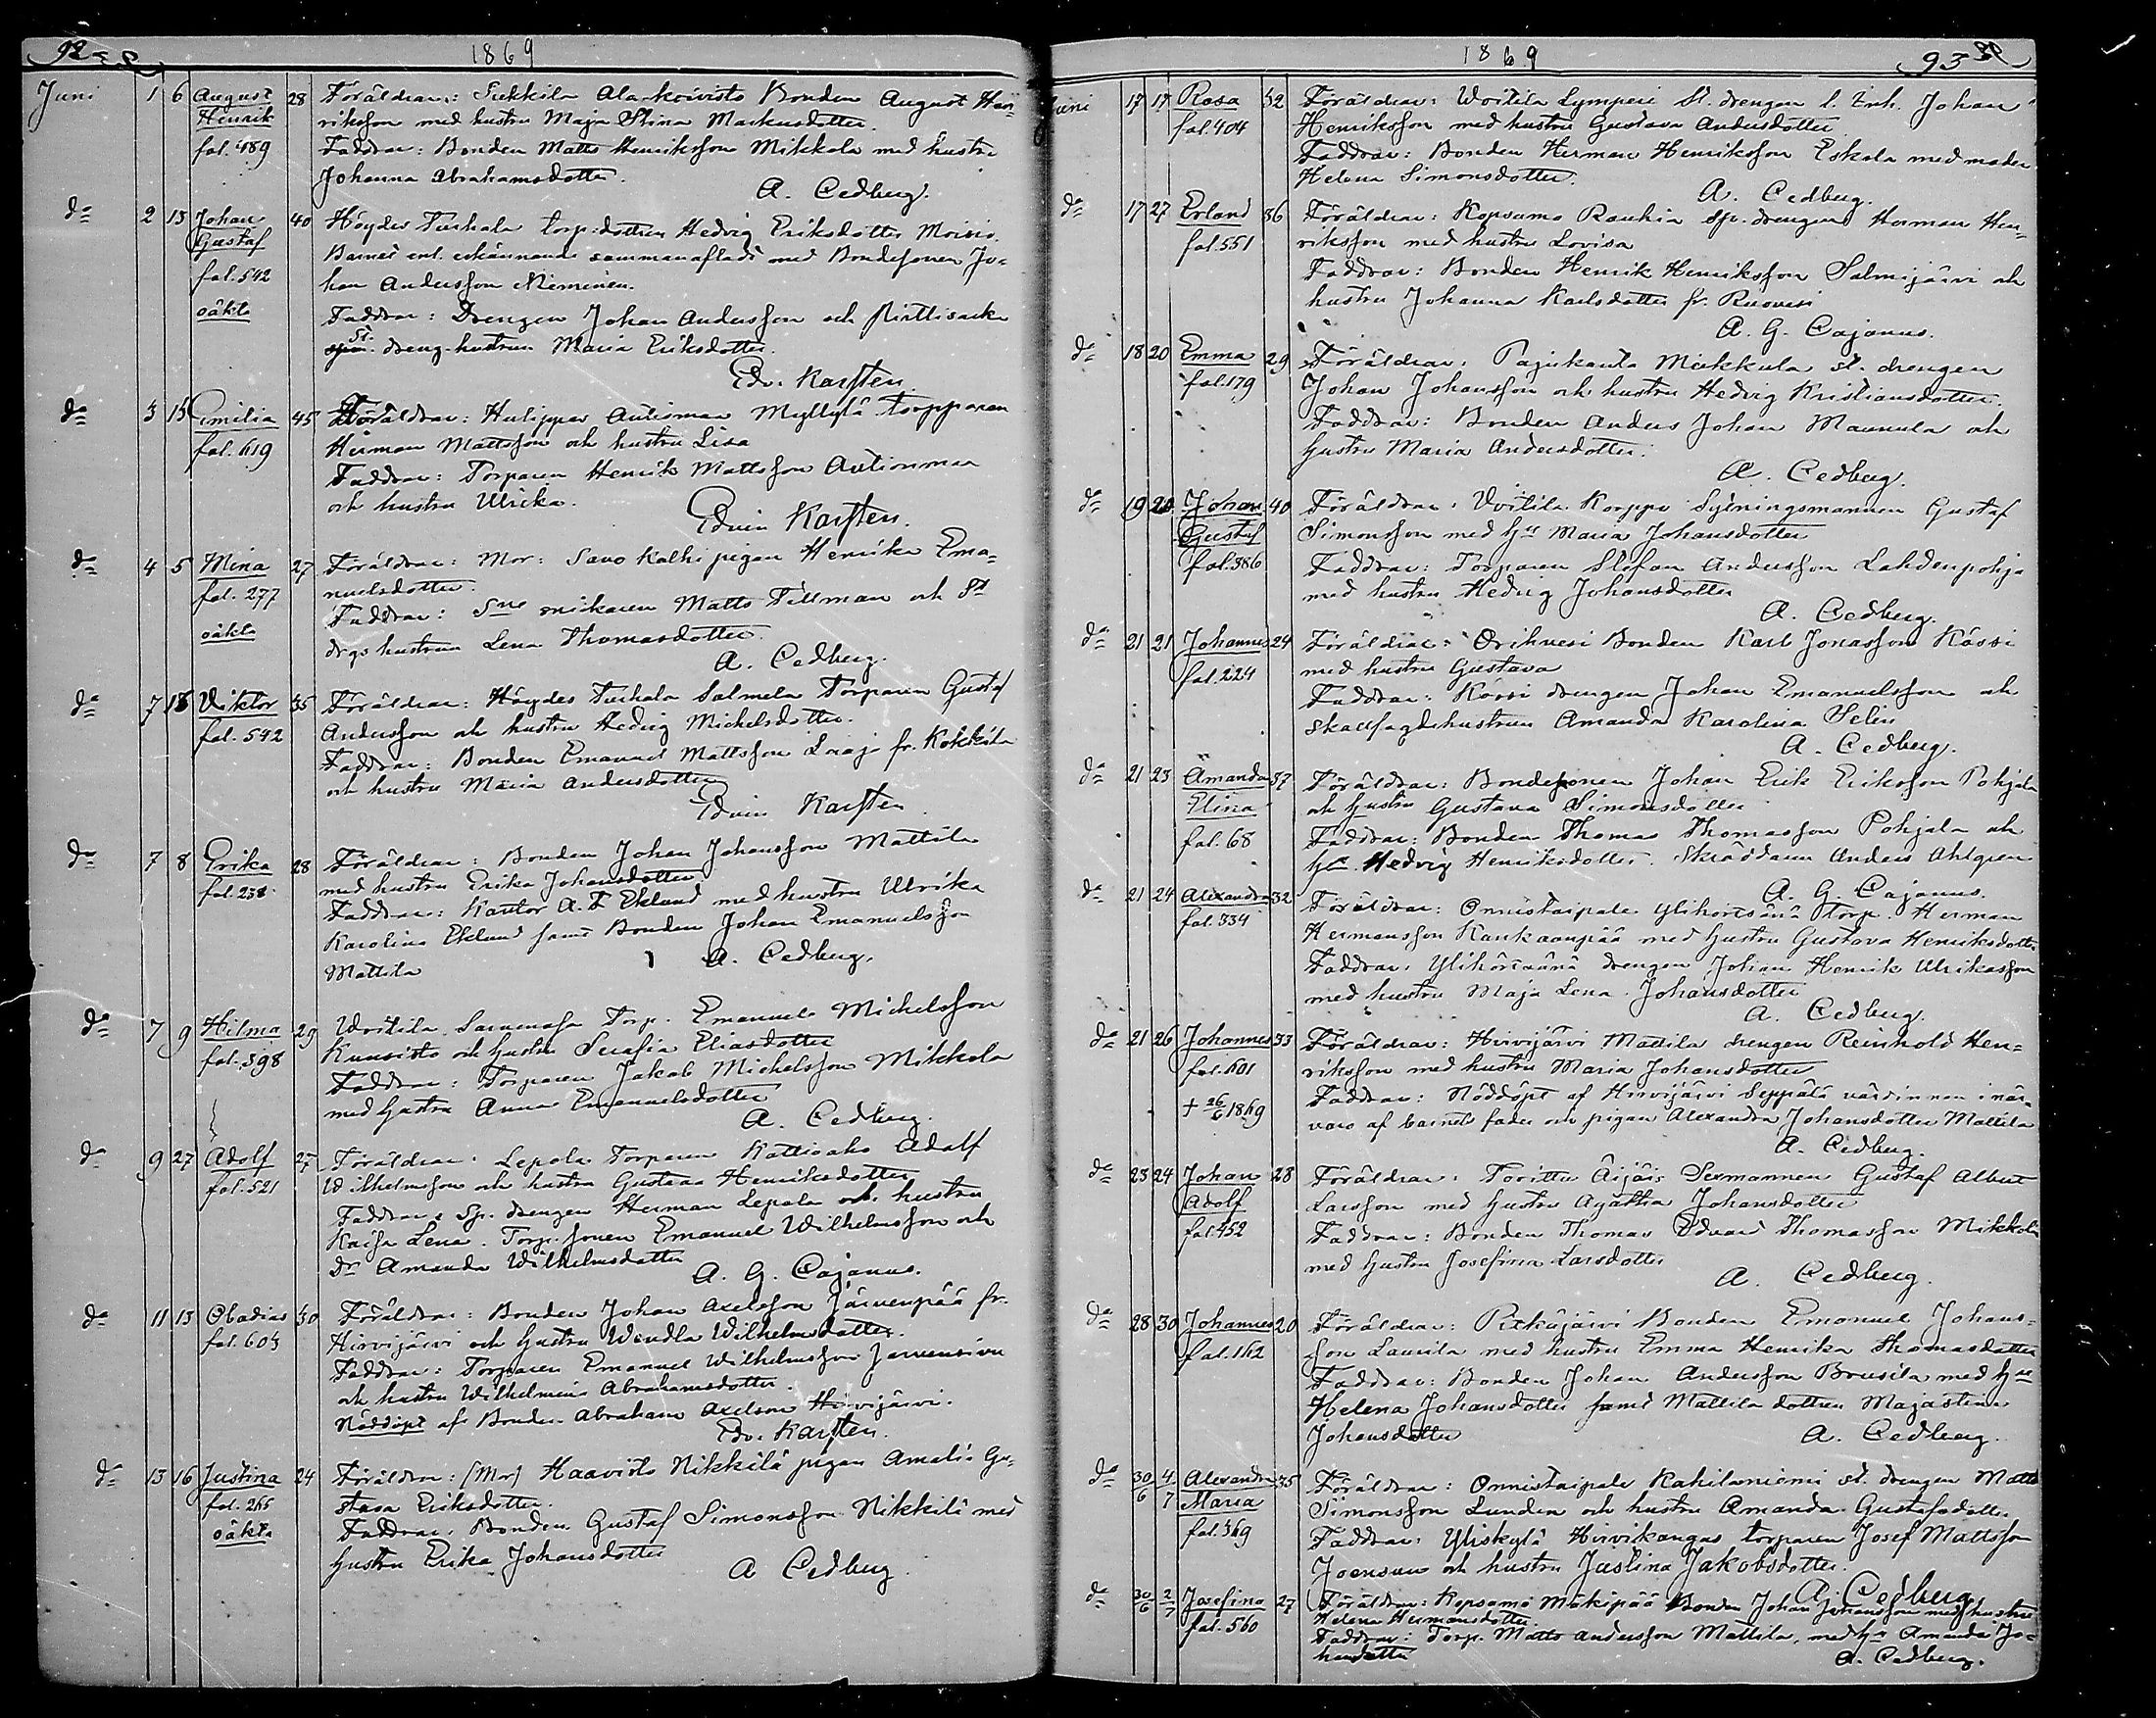 92
1869
Juni 1 6 August 28 Föräldrar: Sukkila Alankoivisto Bonden August Hen-
Henrik riksson med hustru Maja Stina Markusdotter.
fol. 489 Faddrar: Bonden Matts Henriksson Mikkola med hustru
Johanna Abrahamsdotter.
A. Cedberg.
do 2 13 Johan 40 Höydes Turhala torp. dottren Hedvig Eriksdotter Moisio.
Gustaf Barnet enl. erkännande sammanaflade med Bondesonen Jo-
fol. 542 han Andersson Nieminen.
oäkta Faddrar: Drengen Johan Andersson och
St. dreng. hustrun Maria Eriksdotter.
Edv. Karsten.
do 3 15 Emilia 45 Föräldrar: Autioman Myllylä torpparen
fol. 619 Herman Mattsson och hustru Lisa
Faddrar: Torparen Henrik Mattsson Autionmaa
och hustru Ulrika.
Edvin Karsten.
do 4 5 Mina 27 Föräldrar: Mor: Savo Kalhi pigan Henrika Ema-
fol. 277 nuelsdotter.
oäkta Faddrar: snikaren Matts Tillman och St
drgs hustrun Lena Thomasdotter.
A. Cedberg.
do 7 18 Viktor 35 Föräldrar: Höydes Turhala Salmela Torparen Gustaf
fol. 542 Andersson och hustru Hedvig Michelsdotter.
Faddrar: Bonden Emanuel Mattsson Laaja fr. Kokkila
och hustru Maria Andersdotter
Edvin Karsten
do 7 8 Erika 28 Föräldrar: Bonden Johan Johansson Mattila
fol. 238 med hustru Erika Johansdotter
Faddrar: Kantor A. F Eklund med hustru Ulrika
Karolina Eklund samt Bonden Johan Emanuelsson
Mattila A. Cedberg.
do 7 9 Hilma 29 Voitila Sarvensa Torp. Emanuel Michelsson
fol. 398 Kuusisto och hustru Serafia Eliasdotter
Faddrar: Torparen Jakob Michelsson Mikkola
med hustru Anna Emanuelsdotter
A. Cedberg.
do 9 27 Adolf 27 Föräldrar: Lepola Torparen Kattioaho Adolf
fol. 521 Wilhelmsson och hustru Gustava Henriksdotter
Faddrar: Sp. drengen Herman Lepola och hustru
Kaisa Lena. Torp. sonen Emanuel Wilhelmsson och
Dr Amanda Wilhelmsdotter
A. G. Cajanus.
do 11 13 Obadias 30 Föräldrar: Bonden Johan Axelsson Järvenpää fr.
fol. 603 Hirvijärvi och hustru Wendla Wilhelmsdotter.
Faddrar: Torparen Emanuel Wilhelmsson Jarvensivu
och hustru Wilhelmina Abrahamsdotter.
Nöddöpt af Bonden Abraham Axelsson Hirvijärvi.
Edv. Karsten.
do 13 16 Justina 24 Föräldrar: (Mor) Haavisto Nikkilä pigan Amalia Gu-
fol. 265 stava Eriksdotter.
oäkta Faddrar: Bonden Gustaf Simonsson Nikkilä med
hustru Erika Johansdotter
A Cedberg
1869
93
Juni 17 17 Rosa 32 Föräldrar: Voitila Lymperi St. drengen l. Enk. Johan
fol. 404 Henriksson med hustru Gustava Andersdotter
Faddrar: Bonden Herman Henriksson Eskola med moder
Helena Simonsdotter.
A. Cedberg.
do 17 27 Erland 36 Föräldrar: Kopsamo Rauhia sp. drengen Herman Hen-
fol. 551 riksson med hustru Lovisa
Faddrar: Bonden Henrik Henriksson Salmijärvi och
hustru Johanna Karlsdotter fr. Ruovesi
A. G. Cajanus.
do 18 20 Emma 29 Föräldrar: Pajukanta Mukkula st. drengen
fol. 179 Johan Johansson och hustru Hedvig Kristiansdotter.
Faddrar: Bonden Anders Johan Mannula och
hustru Maria Andersdotter.
A. Cedberg.
do 19 20 Johan 40 Föräldrar: Voitila Korppi Sytningsmannen Gustaf
Gustaf Simonsson med hu Maria Johansdotter
fol. 386 Faddrar: Torparen Stefan Andersson Lahdenpohja
med hustru Hedvig Johansdotter
A. Cedberg.
do 21 21 Johannes 24 Föräldrar: Orihvesi Bonden Karl Jonasson Kässi
fol. 224 med hustru Gustava
Faddrar: Kässi drengen Johan Emanuelsson och
skallfogdehustrun Amanda Karolina Selin
A. Cedberg.
do 21 23 Amanda 37 Föräldrar: Bondesonen Johan Erik Eriksson Pohjala
Elina och hustru Gustava Simonsdotter
fol. 68 Faddrar: Bonden Thomas Thomasson Pohjala och
hu Hedvig Henriksdotter. Skräddaren Anders Ahlgren
A. G. Cajanus.
do 21 24 Alexandra 32 Föräldrar: Onnistaipale Torp. Herman
fol. 334 Hermansson Kankaanpää med hustru Gustava Henriksdotter
Faddrar: drengen Johan Henrik Ulrikasson
med hustru Maja Lena Johansdotter
A. Cedberg.
do 21 26 Johannes 33 Föräldrar: Hirvijärvi Mattila drengen Reinhold Hen-
fol. 601 riksson med hustru Maria Johansdotter
† 26/6 1869 Faddrar: Nöddöpt af Hirvijärvi Seppälä värdinnan i när-
varo af barnets fader och pigan Alexandra Johansdotter Mattila
A. Cedberg.
do 23 24 Johan 28 Föräldrar: Torittu Äijäis Sexmannen Gustaf Albert
Adolf Larsson med hustru Agatha Johansdotter
fol. 452 Faddrar: Bonden Thomas Edvard Thomasson Mikkola
med hustru Josefina Larsdotter
A. Cedberg.
do 28 30 Johannes 20 Föräldrar: Pitkäjärvi Bonden Emanuel Johans-
fol. 162 son Laurila med hustru Emma Henrika Thomasdotter
Faddrar: Bonden Johan Andersson Brusila med hu
Helena Johansdotter samt Mattila dottren Majastina
Johansdotter A. Cedberg.
do 30/6 4/7 Alexandra 35 Föräldrar: Onnistaipale Kahilaniemi st. drengen Matts
Maria Simonsson Lunden och hustru Amanda Gustafsdotter
fol. 369 Faddrar: Yliskylä Hirvikangas torparen Josef Mattsson
Joensuu och hustru Justina Jakobsdotter.
A. Cedberg
do 30/6 2/7 Josefina 27 Föräldrar: Kopsamo Mäkipää Bonden Johan Johansson med hustru
fol. 560 Helena Hermansdotter
Faddrar: Torp. Matts Andersson Mattila, med hu Amanda Jo-
hansdotter A. Cedberg.